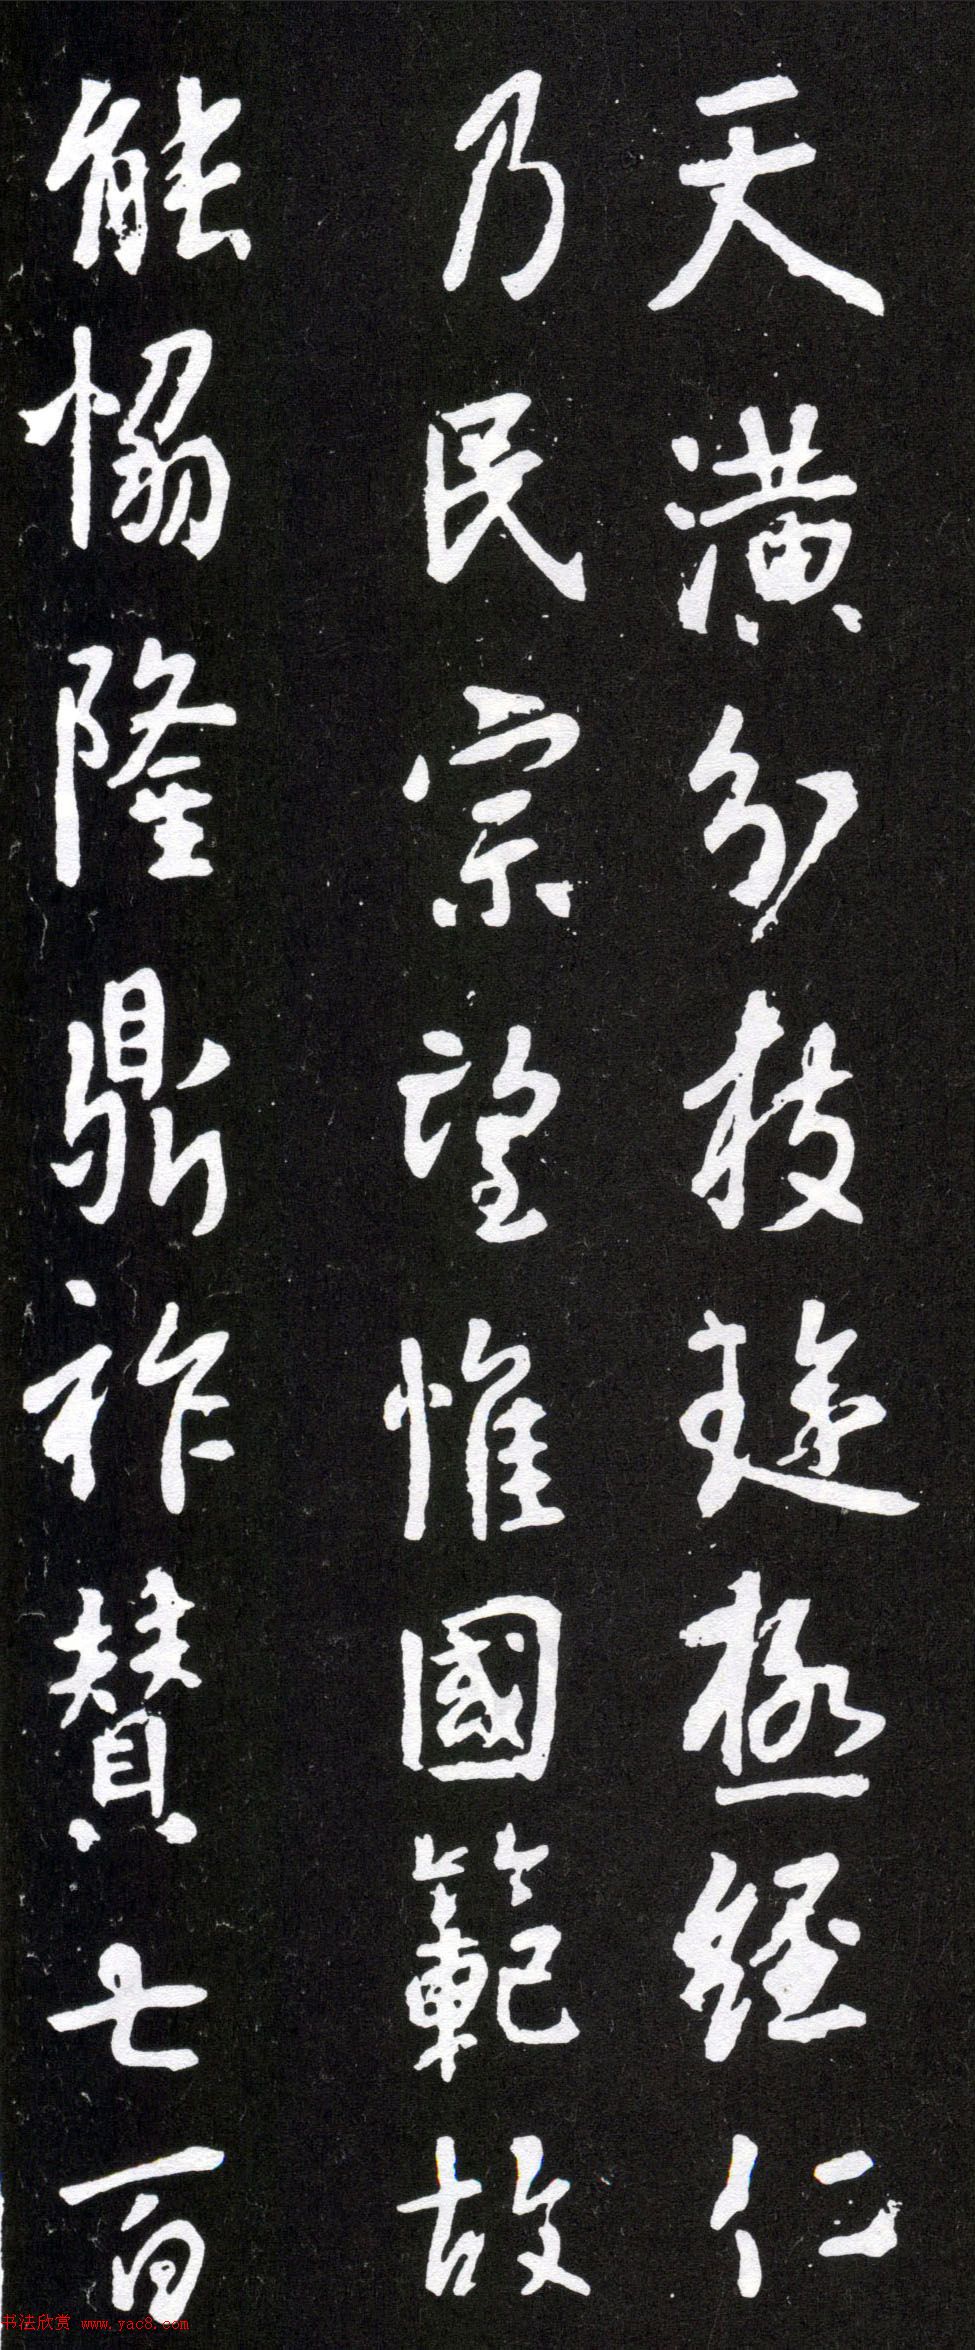 天潢分枝琁極經仁
乃民宗望惟國範故
能協隆鼎祚贊七百
书法欣赏 www.yac8.com